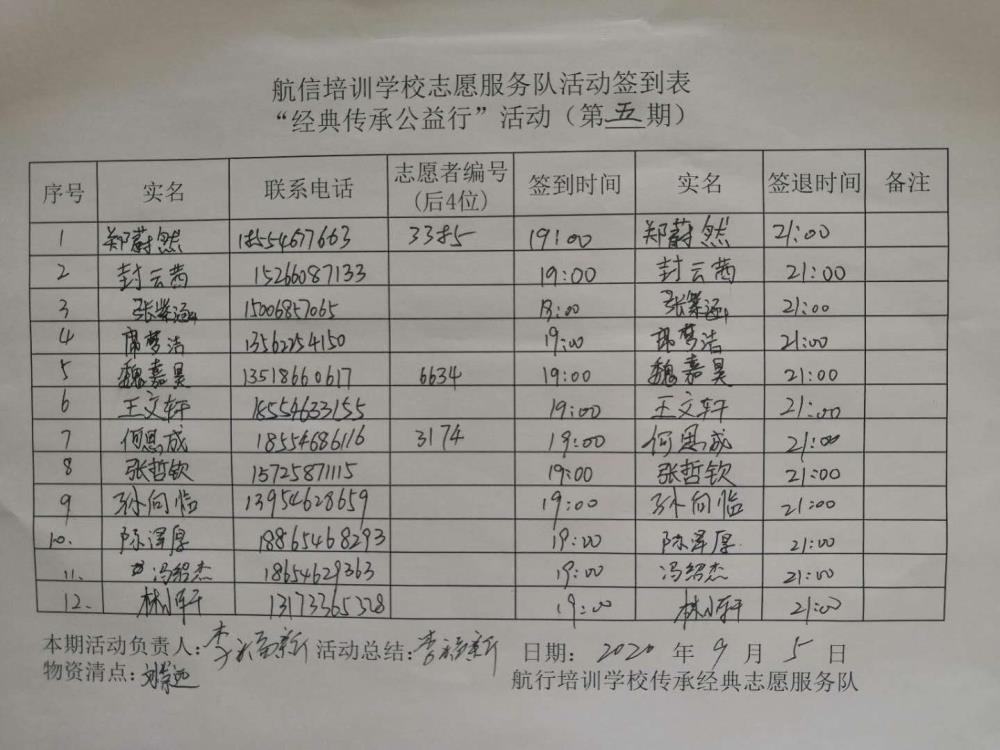 航信培训学校志愿服务队活动签到表
“经典传承公益行”活动（第五期）
序号 实名 联系电话 志愿者编号(后4位) 签到时间 实名 签退时间 备注
1 郑蔚然 18554677663 3385 19:00 郑蔚然 21:00
2 封云茜 15266087133 19:00 封云茜 21:00
3 张紫涵 15006857065 19:00 张紫涵 21:00
4 席梦洁 13562254150 19:00 席梦洁 21:00
5 魏嘉昊 13518660617 6634 19:00 魏嘉昊 21:00
6 王文轩 18554633155 19:00 王文轩 21:00
7 何思成 18554686116 3174 19:00 何思成 21:00
8 张哲钦 15725871115 19:00 张哲钦 21:00
9 孙向临 13954628659 19:00 孙向临 21:00
10. 陈泽厚 18865468293 19:00 陈泽厚 21:00
11. 冯绍杰 18654629363 19:00 冯绍杰 21:00
12. 林小轩 13173365328 19:00 林小轩 21:00
本期活动负责人： 活动总结： 日期： 2020 年 9 月 5 日
物资清点：
航行培训学校传承经典志愿服务队